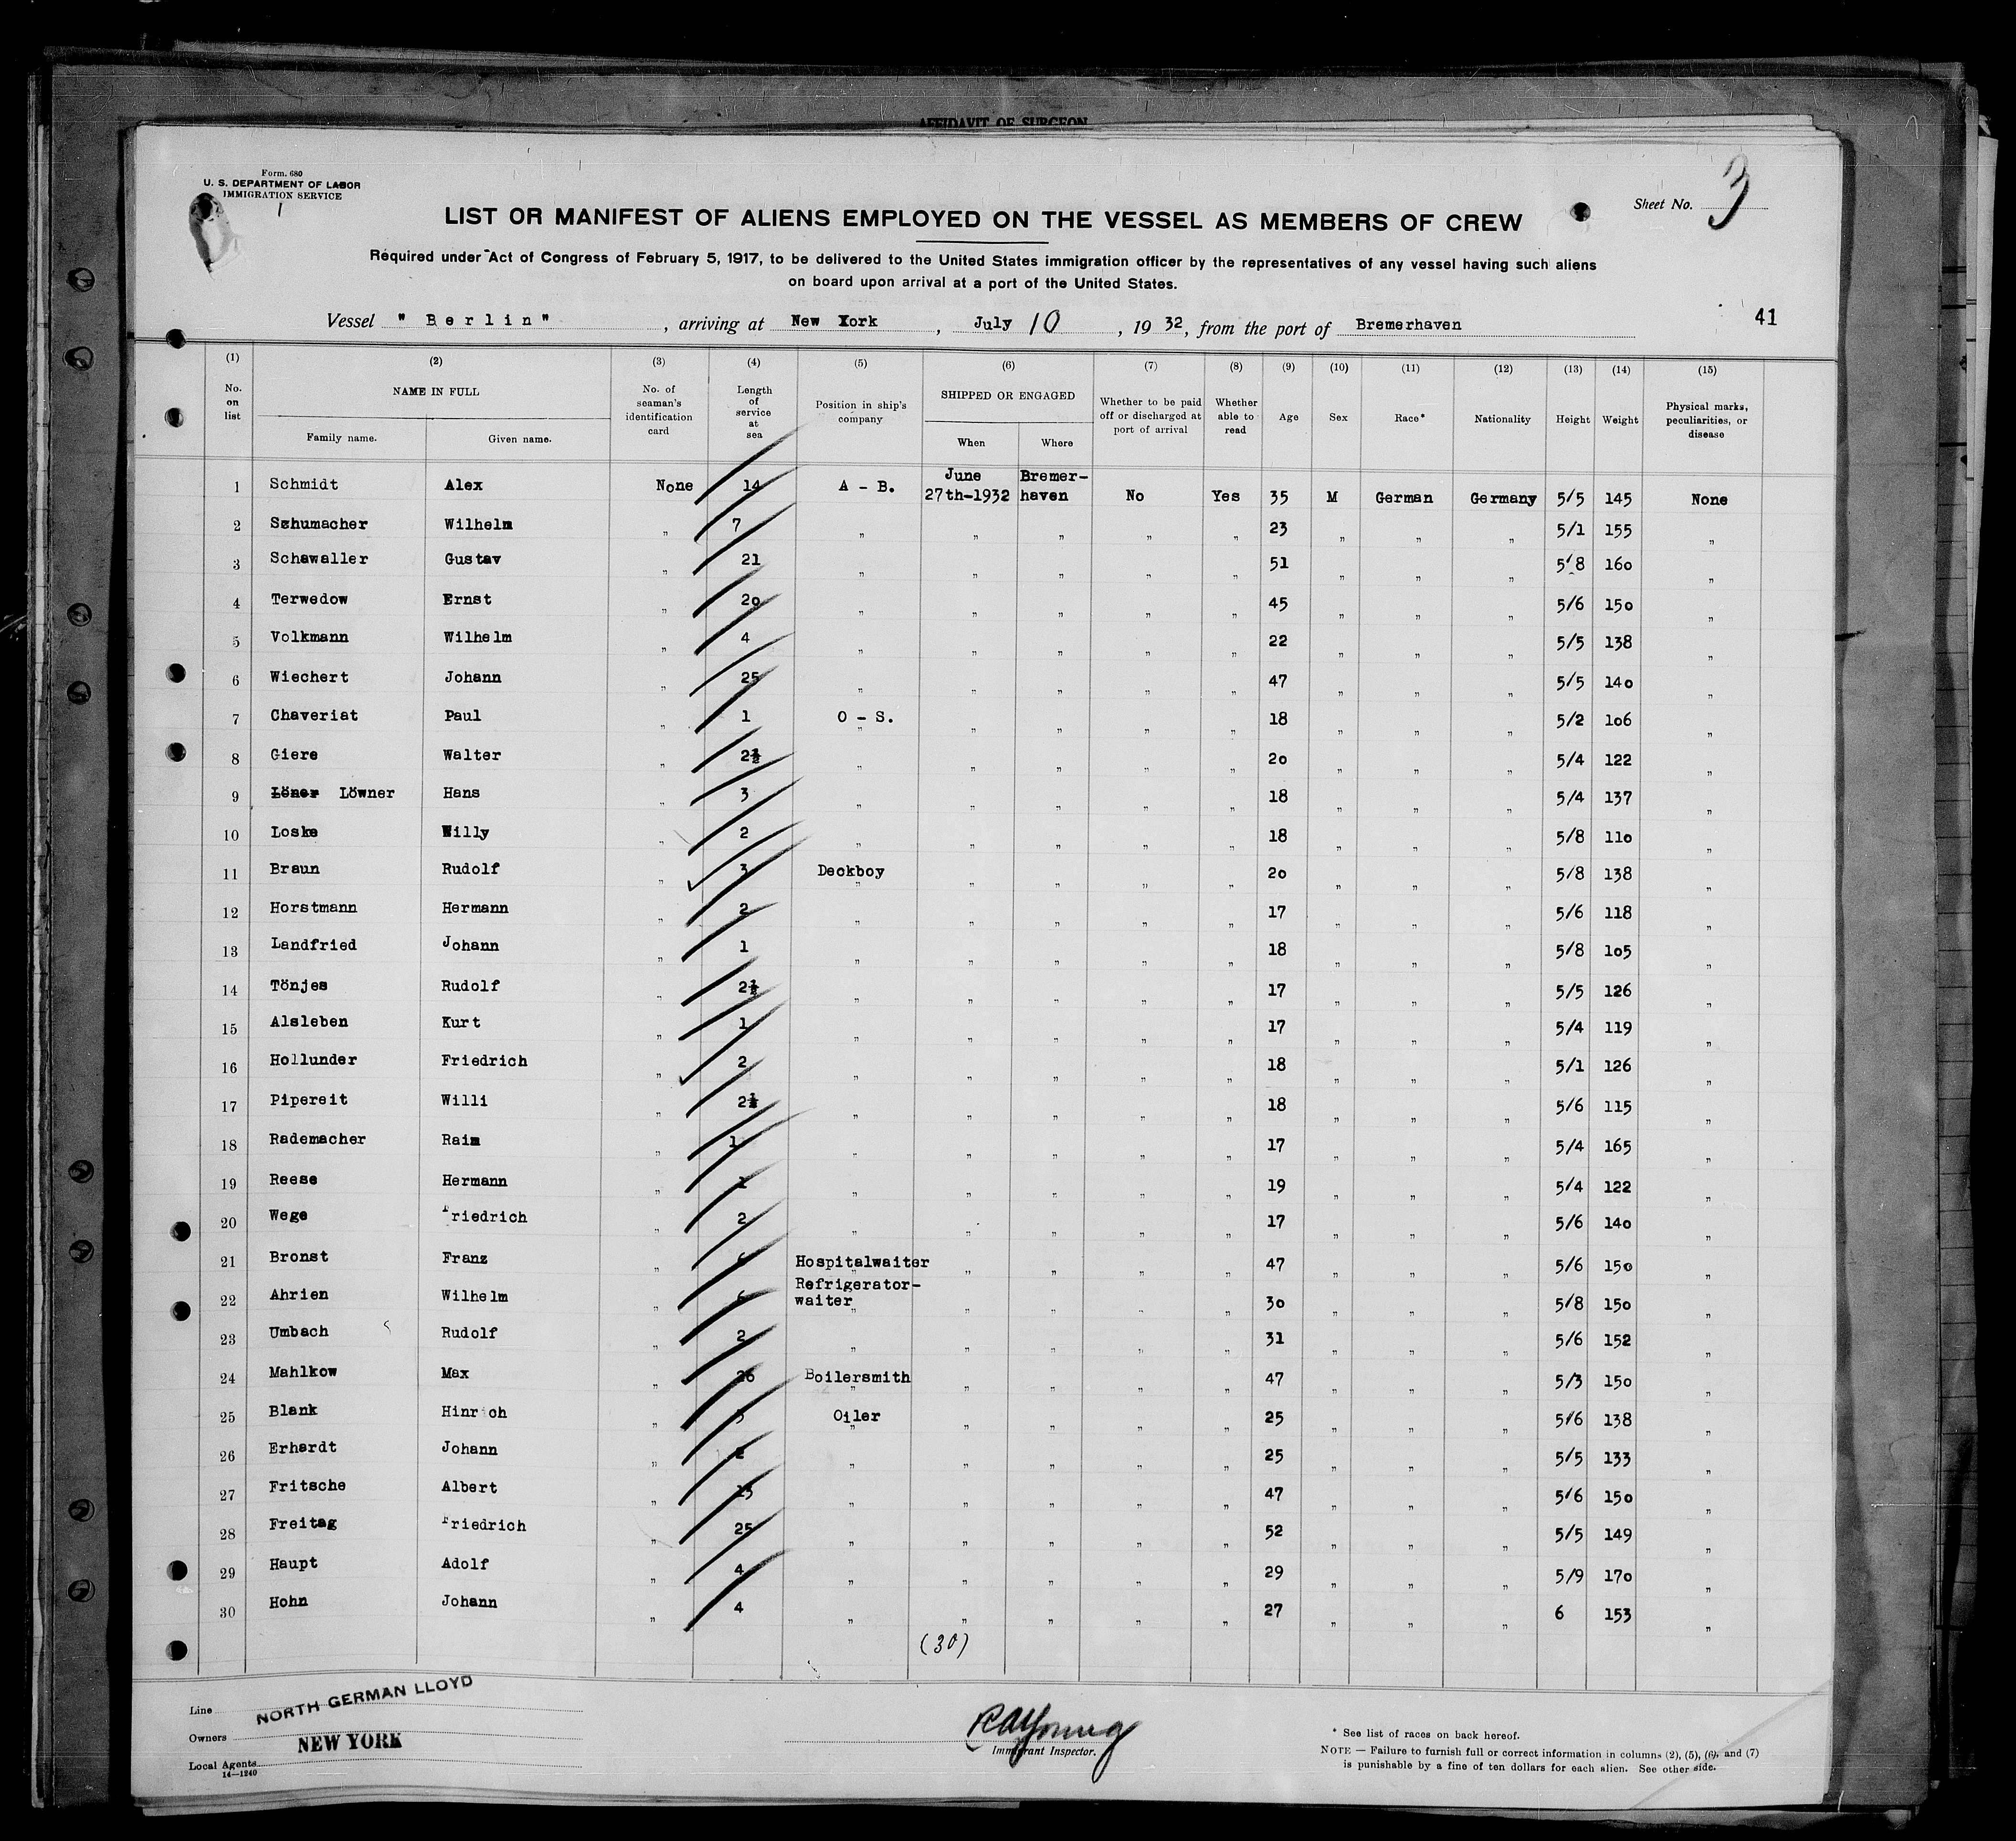 AFFIDAVIT OF SURGEON
Form. 680
U. S. DEPARTMENT OF LABOR
IMMIGRATION SERVICE
Sheet No. 3
LIST OR MANIFEST OF ALIENS EMPLOYED ON THE VESSEL AS MEMBERS OF CREW
Required under Act of Congress of February 5, 1917, to be delivered to the United States immigration officer by the representatives of any vessel having such aliens
on board upon arrival at a port of the United States.
Vessel " Berlin " , arriving at New York , July 10 , 19 32, from the port of Bremerhaven
41
(1) (2) (3) (4) (5) (6) (7) (8) (9) (10) (11) (12) (13) (14) (15)
No. on list NAME IN FULL Family name. Given name. No. of seaman's identification card Length of service at sea Position in ship's company SHIPPED OR ENGAGED When Where Whether to be paid off or discharged at port of arrival Whether able to read Age Sex Race* Nationality Height Weight Physical marks, peculiarities, or disease
1 Schmidt Alex None 14 A - B. June 27th-1932 Bremer-haven No Yes 35 M German Germany 5/5 145 None
2 Szhumacher Wilhelm " 7 " " " " " 23 " " " 5/1 155 "
3 Schawaller Gustav " 21 " " " " " 51 " " " 5/8 160 "
4 Terwedow Ernst " 20 " " " " " 45 " " " 5/6 150 "
5 Volkmann Wilhelm " 4 " " " " " 22 " " " 5/5 138 "
6 Wiechert Johann " 25 " " " " " 47 " " " 5/5 140 "
7 Chaveriat Paul " 1 O - S. " " " " " 18 " " " 5/2 106 "
8 Giere Walter " 2½ " " " " " 20 " " " 5/4 122 "
9 Löner Löwner Hans " 3 " " " " " 18 " " " 5/4 137 "
10 Loske Willy " 2 " " " " " 18 " " " 5/8 110 "
11 Braun Rudolf " 3 Deckboy " " " " " 20 " " " 5/8 138 "
12 Horstmann Hermann " 2 " " " " " 17 " " " 5/6 118 "
13 Landfried Johann " 1 " " " " " 18 " " " 5/8 105 "
14 Tönjes Rudolf " 2½ " " " " " 17 " " " 5/5 126 "
15 Alsleben Kurt " 1 " " " " " 17 " " " 5/4 119 "
16 Hollunder Friedrich " 2 " " " " " 18 " " " 5/1 126 "
17 Pipereit Willi " 2½ " " " " " 18 " " " 5/6 115 "
18 Rademacher Raim " 1 " " " " " 17 " " " 5/4 165 "
19 Reese Hermann " 1 " " " " " 19 " " " 5/4 122 "
20 Wege Friedrich " 2 " " " " " 17 " " " 5/6 140 "
21 Bronst Franz " 6 Hospitalwaiter " " " " " 47 " " " 5/6 150 "
22 Ahrien Wilhelm " 6 Refrigerator-waiter " " " " 30 " " " 5/8 150 "
23 Umbach Rudolf " 2 " " " " " 31 " " " 5/6 152 "
24 Mahlkow Max " 26 Boilersmith " " " " " 47 " " " 5/3 150 "
25 Blank Hinrich " 3 Oiler " " " " " 25 " " " 5/6 138 "
26 Erhardt Johann " 2 " " " " " 25 " " " 5/5 133 "
27 Fritsche Albert " 13 " " " " " 47 " " " 5/6 150 "
28 Freitag Friedrich " 25 " " " " " 52 " " " 5/5 149 "
29 Haupt Adolf " 4 " " " " " 29 " " " 5/9 170 "
30 Hohn Johann " 4 " " " " " 27 " " " 6 153 "
(30)
Line NORTH GERMAN LLOYD
Owners NEW YORK
Local Agents
14—1240
RAYoung
Immigrant Inspector.
* See list of races on back hereof.
NOTE — Failure to furnish full or correct information in columns (2), (5), (6), and (7)
is punishable by a fine of ten dollars for each alien. See other side.